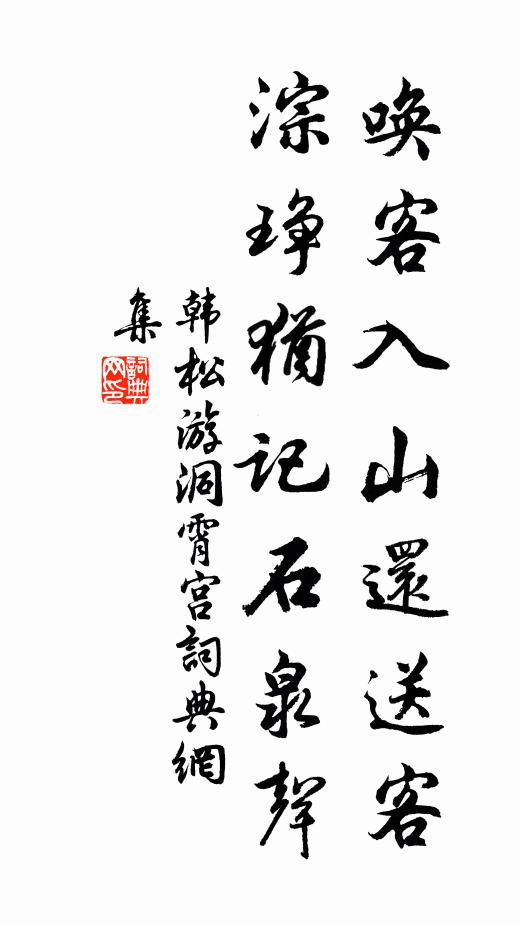 唤客入山還送客
淙琤猶记石泉聲
韩松游洞霄宫詞典網
集
詞典網印